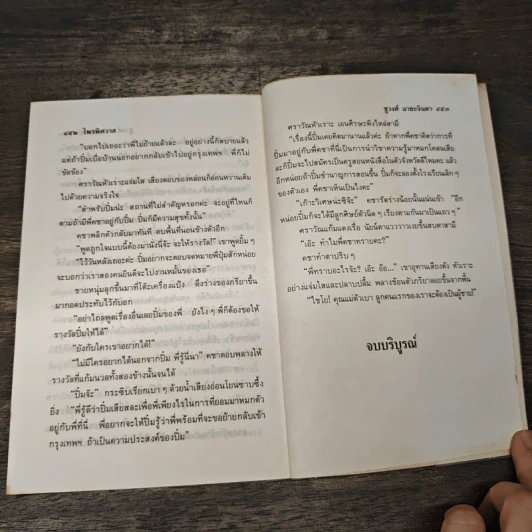 ๔๕๒ ไพรพิศวาส
"บอกไปเถอะว่าพี่ไม่ย้ายแล้วล่ะ อยู่อย่างนี้ก็สบายแล้ว
แต่ถ้าปิ่มเบื่อบ้านนอกอยากกลับเข้าไปอยู่กรุงเทพฯ พี่ก็ไม่
ขัดข้อง"
คราวัณหัวเราะแจ่มใส เสียงตอบของหล่อนก็อ่อนหวานเต็ม
ไปด้วยความจริงใจ
"สำหรับปิ่มน่ะ สถานที่ไม่สำคัญหรอกค่ะ จะอยู่ที่ไหนก็
ตามถ้ามีพี่คชาอยู่กับปิ่ม ปิ่มก็มีความสุขทั้งนั้น"
คชาพลิกตัวกลับมาทันที ตบพื้นที่นอนข้างตัวอีก
"พูดถูกใจแบบนี้ต้องมานั่งนี่จ้ะ จะให้รางวัล!" เขาพูดยิ้มๆ
"ไว้วันหลังเถอะค่ะ ปิ่มอยากจะตอบจดหมายพี่ปุ้มสักหน่อย
จะบอกว่าเราสองคนยินดีจะไปงานหมั้นของเธอ"
ชายหนุ่มลุกขึ้นมาที่โต๊ะเครื่องแป้ง ดึงร่างของภริยาขึ้น
มากอดประทับไว้กับอก
"อย่าไถลพูดเรื่องอื่นเลยปิ่มของพี่ ยังไงๆ พี่ก็ต้องขอให้
รางวัลปิ่มให้ได้"
"ยังกับใครเขาอยากได้!"
"ไม่มีใครอยากได้นอกจากปิ่ม พี่รู้นี่นา" คชาตอบพลางให้
รางวัลที่แก้มนวลทั้งสองข้างนั้นจนได้
"ปิ่มจ๊ะ" กระซิบเรียกเบาๆ ด้วยน้ำเสียงอ่อนโยนซาบซึ้ง
ยิ่ง "พี่รู้ดีว่าปิ่มเสียสละเพื่อพี่เพียงไรในการที่ยอมมาหมกตัว
อยู่กับพี่ที่นี่ พี่อยากจะให้ปิ่มรู้ว่าพี่พร้อมที่จะขอย้ายกลับเข้า
กรุงเทพฯ ถ้าเป็นความประสงค์ของปิ่ม"
ชูวงศ์ ฉายะจินดา ๔๕๓
คราวัณหัวเราะ เอนศีรษะพิงไหล่สามี
"เรื่องนี้ปิ่มเคยคิดมานานแล้วค่ะ ถ้าหากพี่คชาคิดว่าการที่
ปิ่มมาอยู่กับพี่คชาที่นี่เป็นการนำวิชาความรู้มาหมกโคลนเสีย
ละก็ปิ่มจะไปสมัครเป็นครูสอนหนังสือในตัวจังหวัดดีไหมคะ แล้ว
อีกหน่อยถ้าปิ่มชำนาญการสอนขึ้น ปิ่มก็จะลองตั้งโรงเรียนเล็กๆ
ของตัวเอง พี่คชาเห็นเป็นไงคะ"
"เก๊าะวิเศษน่ะซิจ๊ะ" คชารัดร่างน้อยนั้นแน่นเข้า "อีก
หน่อยปิ่มก็จะได้มีลูกศิษย์ตัวนิดๆ เรียงตามกันมาเป็นแถวๆ"
คราวัณแก้มแดงเรื่อ นัยน์ตาแวววาวเงยขึ้นสบตาสามี
"เอ๊ะ ทำไมพี่คชาทราบคะ?"
คชาทำตาปริบๆ
"พี่ทราบอะไรจ๊ะ? เอ๊ะ อ้อ..." เขาอุทานเสียงดัง หัวเราะ
อย่างแจ่มใสและปลาบปลื้ม พลางช้อนตัวภริยาลอยขึ้นจากพื้น
"ไชโย! คุณแม่ตัวเบา ลูกคนแรกของเราจะต้องเป็นผู้ชาย!"
จบบริบูรณ์